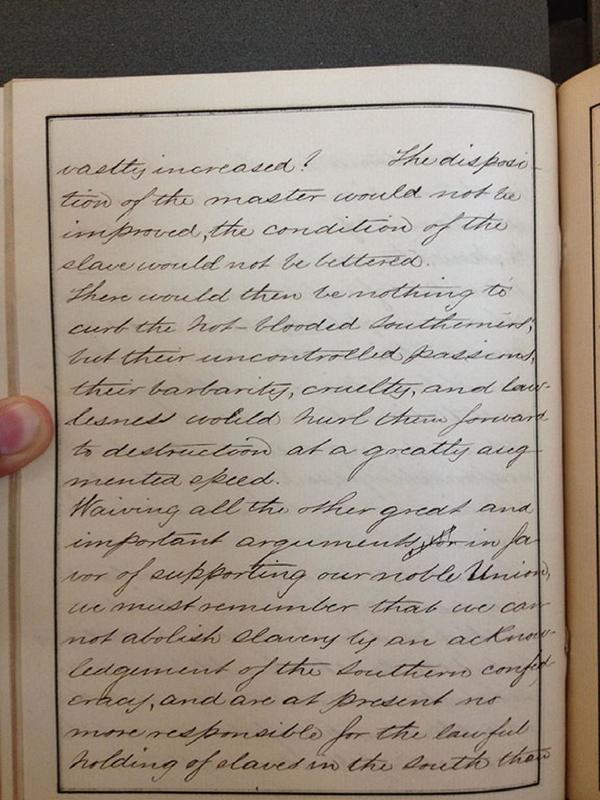 vastly increased? The disposi-
tion of the master would not be
improved, the condition of the
slave would not be bettered.
There would then be nothing to
curb the hot-blooded southerners;
but their uncontrolled passions,
their barbarity, cruelty, and law-
lesness would hurl them forward
to destruction at a greatly aug-
mented speed.
Waiving all the other great and
important arguments, in fa-
vor of supporting our noble Union,
we must remember that we can
not abolish slavery by an acknow-
ledgement of the southern confed-
eracy, and are at present no
more responsible for the lawful
holding of slaves in the south than